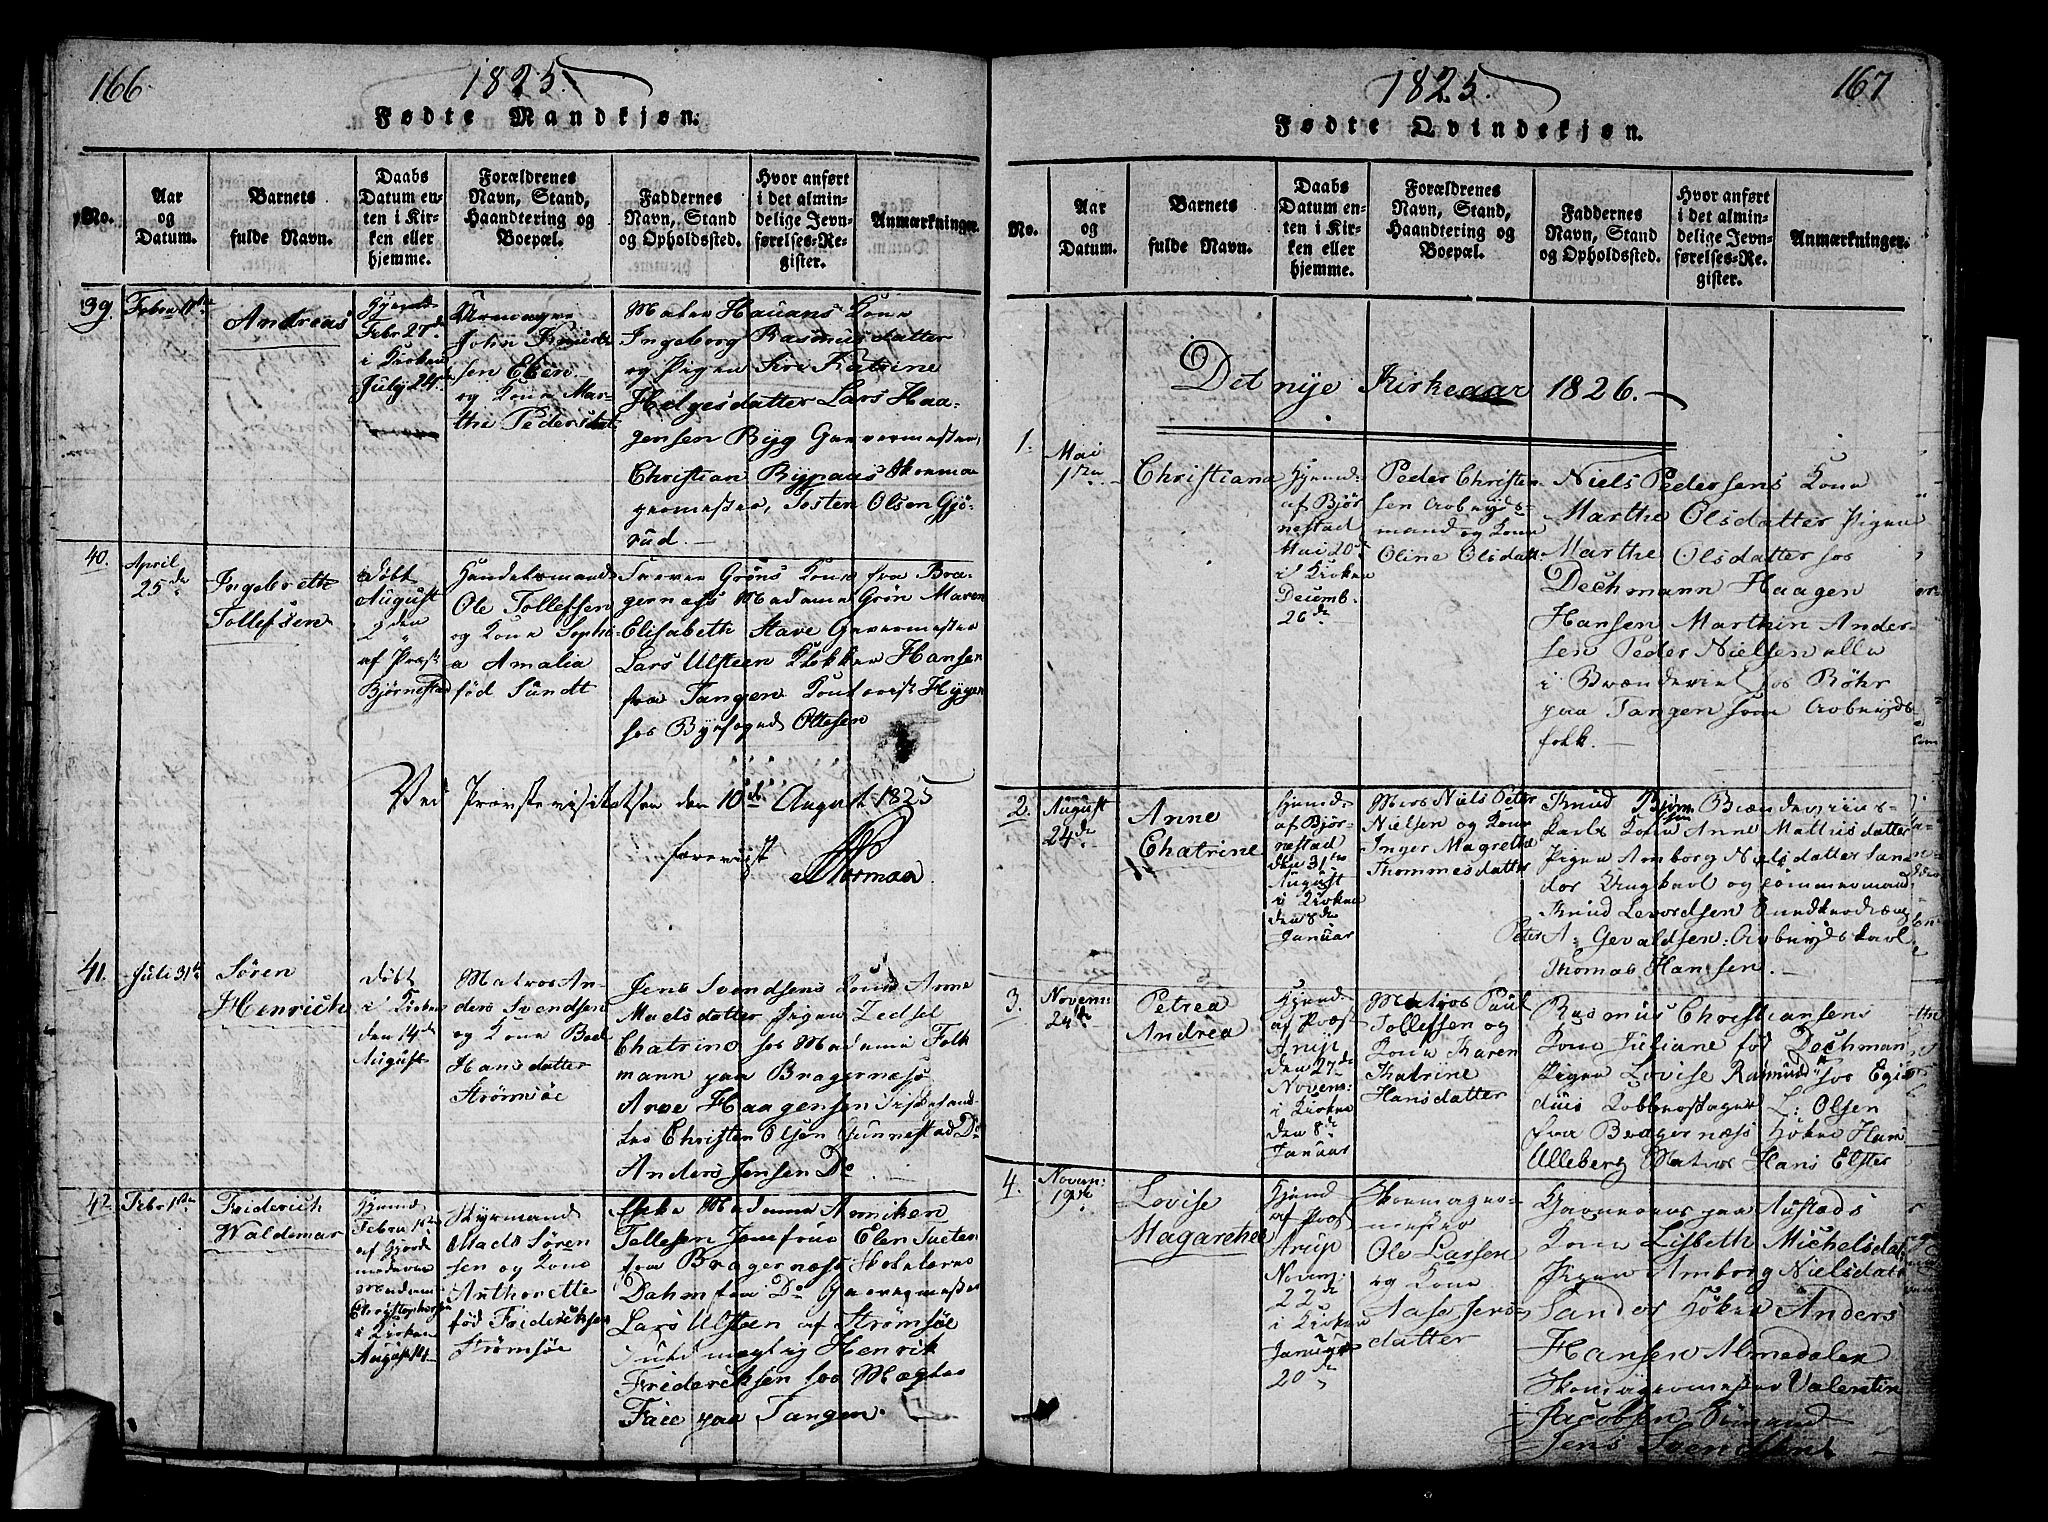 166.
1825.
Fødte Mandkjøn.
No.
Aar
og
Datum.
Barnets
fulde Navn.
Daabs
Datum en-
ten i Kir-
ken eller
hjemme.
Forældrenes
Navn, Stand,
Haandtering og
Boepæl.
Faddernes
Navn, Stand
og Opholdssted.
Hvor anført
i det almin-
delige Jevn-
førelses-Re-
gister.
Anmærkninger.
39
Febru 11te
Andreas
Hjemde
Febr 27de
i Kirken
July 24de
Uhrmager
John Knuds
sen Eken
og Kone Mar-
the Pedersdat
Maler Hauans Kone
Ingeborg Rasmusdatter
og Pigen Siri Katrine
Helgesdatter Lars Haa-
gensen Byg Garvermester,
Christian Rypaas Skoma
germester, Tosten Olsen Gjö-
rud.
40.
April
25de
Ingebrette
Tollefsen
Døbt
August
2den
af Præst
Bjørnestad
Handelsmand
Ole Tollefsen
og Kone Sophi-
a Amalia
fød Sundt
Grøns Kone fra Bra-
gernæss Madame Grøn Maren
Elisabeth Stave Garvermester
Lars Ulsteen Klokker Hansen
fra Tangen
hos Byefoged Ottesen
Ved Provstevisitatsen den 10de August 1825
foreviist
Norman
41.
Juli 31te
Søren
Henrich
Døbt
i Kirken
den 14de
August
Matros An-
ders Svendsen
og Kone
Hansdatter
Strømsöe
Jens Svendsens Kone Anne
Madsdatter Pigen Zedsel
Chatrine hos Madame Folk
mann paa Bragernæss
Arve Haagensen
Christen Olsen Gunnestad Do
Anders Jensen Do
42
Febr 1ste
Friderich
Waldemar
Hjemd
Febru 12
af Gjord
moderen
Madame
Christophersen
i Kirken
August 14
Styrmand
Mads Søren
sen og Kone
Anthonette
fød Frideriksen
Strømsöe
Enke Madame Anniken
Tollefsen Jomfrue Elen
fra Bragernæss Skolelærer
Dahm fra Do Garvermester
Lars Ulsteen af Strømsöe
Henrik
Frideriksen hos Mægler
Faee paa Tangen.
1825.
167
Fødte Qvindekjøn.
No.
Aar
og
Datum.
Barnets
fulde Navn.
Daabs
Datum en-
ten i Kir-
ken eller
hjemme.
Forældrenes
Navn, Stand,
Haandtering og
Boepæl.
Faddernes
Navn, Stand
og Opholdssted.
Hvor anført
i det almin-
delige Jevn-
førelses-Re-
gister.
Anmærkninger.
Det nye Kirkeaar 1826.
1.
Mai
1ste
Christiana
Hjemd
af Bjør
nestad
Mai 20de
i Kirken
Decemb.
26de
Peder Christen
sen Arbeyds-
mand og Kone
Oline Olsdatt
Niels Pedersens Kone
Marthe Olsdatter Pigen
Marthe Olsdatter hos
Dechmann Haagen
Hansen Marthin Ander-
sen Peder Nielsen alle
i Brænderiet hos Röhr
paa Tangen som Arbeyds
folk.
2.
August
24de
Anne
Chatrine
Hjemde
af Bjør-
nestad
den 31te
August
i Kirken
den 8de
Januar
Niels Peter
Nielsen og Kone
Inger Magrethe
Thommesdatter
Knud Bjørn
sen
Brænderiens-
karls Kone Anne Mathisdatter
Pigen Amborg Nielsdatter San-
der og Tømmermand
Knud Levordsen
Peter A. Gevaldsen. Arbeydskarl
Thomas Hansen.
3.
Novem:
24de
Petrea
Andrea
Hjemd
af Præst
Arup
den 27de
Novem:
i Kirken
den 8de
Januar
Matros Paul
Tollefsen og
Kone Karen
Katrine
Hansdatter
Rasmus Christiansens
Kone Juliane fød Dechman
Pigen Lovise Rasmusd hos Egi
dius Kobberslager L: Olsen
fra Bragernæss Höker Han
Ulleberg Matros Hans Elster
4.
Novem:
19de
Lovise
Magarethe
Hjemd
af Præst
Arup
Novem:
22de
i Kirken
Januar
20de
Skomager-
mester
Ole Larsen
og Kone
Aase Jens-
datter
paa Austads
Kone Lisbeth Michelsdat
Pigen Amborg Nielsdatt
Sander Höker Anders
Hansen Almedalen
Skomagermester Valentin
Jacobsen
Jens Svendsen